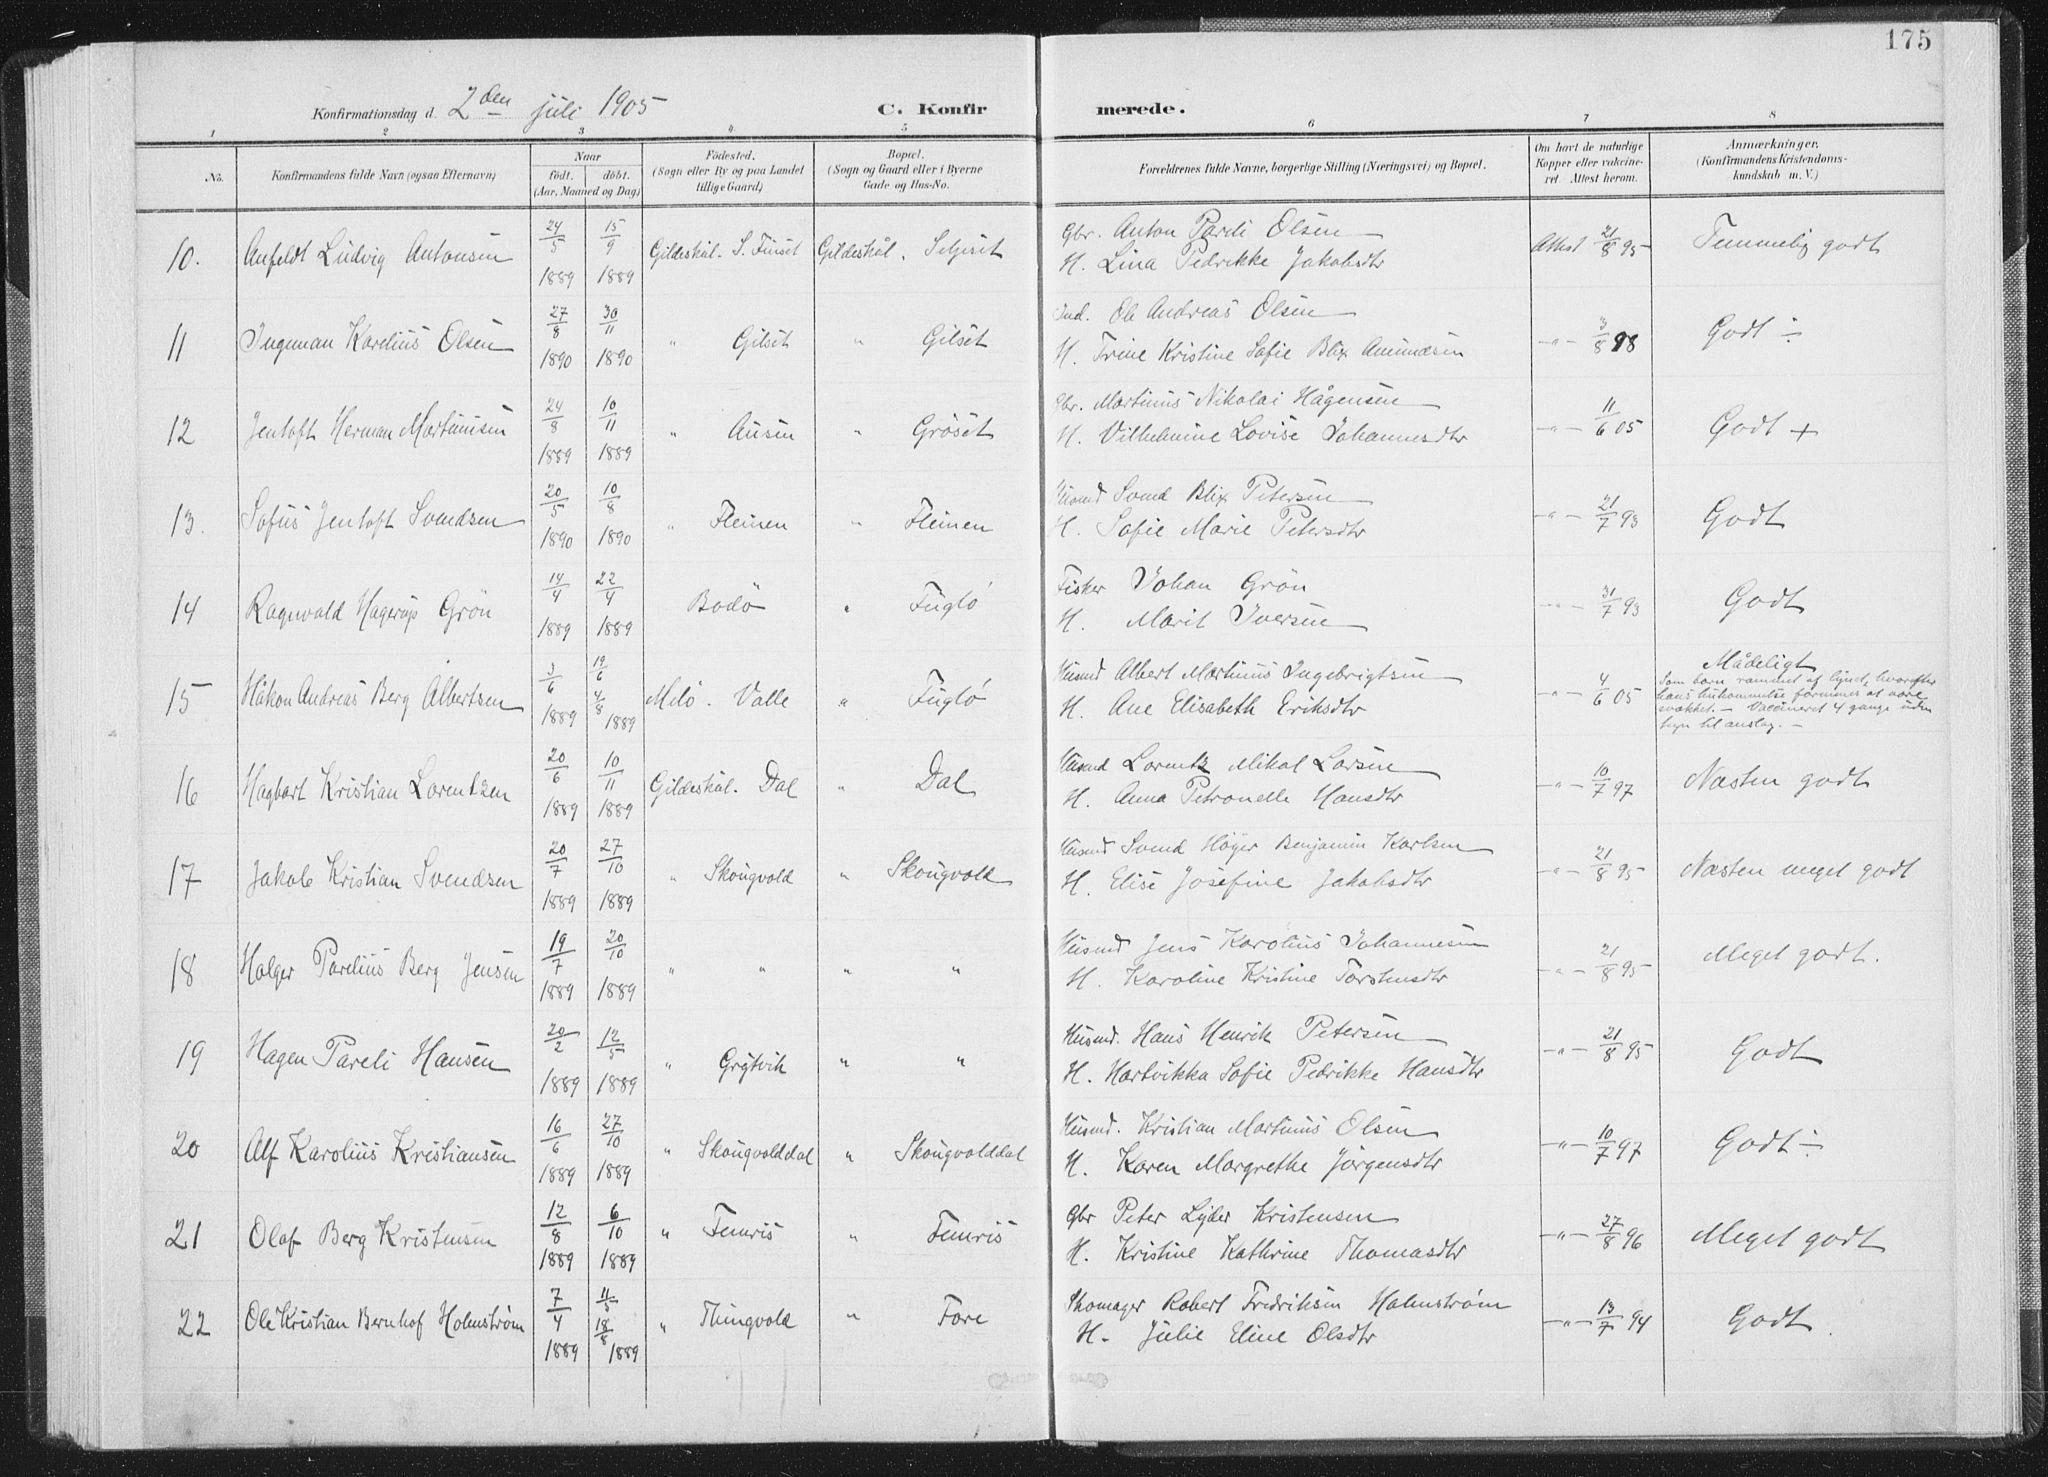 175
Konfirmationsdag d. 2den juli 1905 C. Konfirmerede.
1 2 3 4 5 6 7 8
No. Konfirmandens fulde Navn (ogsaa Efternavn) Naar født. døbt. (Aar, Maaned og Dag) Fødested. (Sogn eller By og paa Landet tillige Gaard) Bopæl. (Sogn og Gaard eller i Byerne Gade og Hus-No. Forældrenes fulde Navne, borgerlige Stilling (Næringsvei) og Bopæl. Om havt de naturlige Kopper eller vakcineret. Attest herom. Anmærkninger. (Konfirmandens Kristendomskundskab m. V.)
10. Anfeldt Ludvig Antonsen 24/5 1889 15/9 1889 Gildeskål. S. Finset Gildeskål. Seljeset Gbr. Anton Pareli Olsen Attest 21/8 95 Temmelig godt
H. Lina Pedrikke Jakobsdtr
11 Ingeman Karelius Olsen 27/8 1890 30/11 1890 " Gilset " Gilset Ind. Ole Andreas Olsen -"- 3/8 98 Godt ÷
H. Trine Kristine Sofie Blix Amundsen
12 Jentoft Herman Martinusen 24/8 1889 10/11 1889 " Ausen " Grøset Gbr. Martinus Nikolai Hågensen -"- 11/6 05 Godt +
H. Vilhelmine Lovise Johannesdtr
13. Sofus Jentoft Svendsen 20/5 1890 10/8 1890 " Fleinen " Fleinen Husmd Svend Blix Petersen -"- 21/7 93 Godt
H. Sofie Marie Petersdtr
14 Ragnvald Hagerup Grön 14/4 1889 22/4 1889 Bodö " Fuglö Fisker Johan Grön -"- 31/7 93 Godt
H. Marit Iversen
15 Håkon Andreas Berg Albertsen 3/6 1889 19/6 4/8 1889 Melö. Valle " Fuglö Husmd Albert Martinus Ingebrigtsen -"- 4/6 05 Mådeligt
H. Ane Elisabeth Eriksdtr Som barn rammet af lynet, hvorefter
hans hukommelse formenes at være
svækket. - Vaccineret 4 gange uden
tegn til anslag. -
16 Hagbart Kristian Lorentzen 20/6 1889 10/11 1889 Gildeskål. Dal " Dal Husmd Lorentz Mikal Larsen -"- 10/7 97 Næsten godt
H. Anna Petronelle Hansdtr
17 Jakob Kristian Svendsen 20/7 1889 27/10 1889 " Skougvold " Skougvold Husmd Svend Höyer Benjamin Karlsen -"- 21/8 95 Næsten meget godt
H. Elise Josefine Jakobsdtr
18 Holger Parelius Berg Jensen 19/7 1889 20/10 1889 " " " " Husmd Jens Karolius Johannesen -"- 21/8 95 Meget godt.
H. Karoline Kristine Torstensdtr
19 Hagen Pareli Hansen 20/2 1889 12/5 1889 " Grytvik " " Husmd. Hans Henrik Petersen -"- 21/8 95 Godt
H. Hartvikka Sofie Pedrikke Hansdtr
20 Alf Karolius Kristiansen 16/6 1889 27/10 1889 " Skougvolddal " Skougvolddal Husmd. Kristian Martinus Olsen -"- 10/7 97 Godt ÷
H. Karen Margrethe Jörgensdtr
21 Olaf Berg Kristensen 12/8 1889 6/10 1889 " Femris " Femris Gbr Peter Lyder Kristensen -"- 27/8 96 Meget godt
H. Kristine Kathrine Thomasdtr
22 Ole Kristian Bernhof Holmstrøm 7/4 1889 11/5 18/8 1889 " Thingvold " Fore Skomager Robert Fredriksen Holmstrøm -"- 13/7 94 Godt
H. Julie Eline Olsdtr